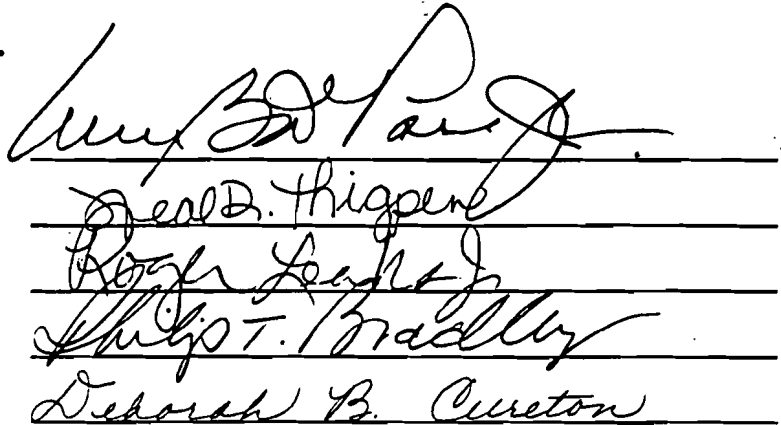 Jr.
Neal D. Thigpen
Roger Leaks Jr
Philip T. Bradley
Deborah B. Cureton